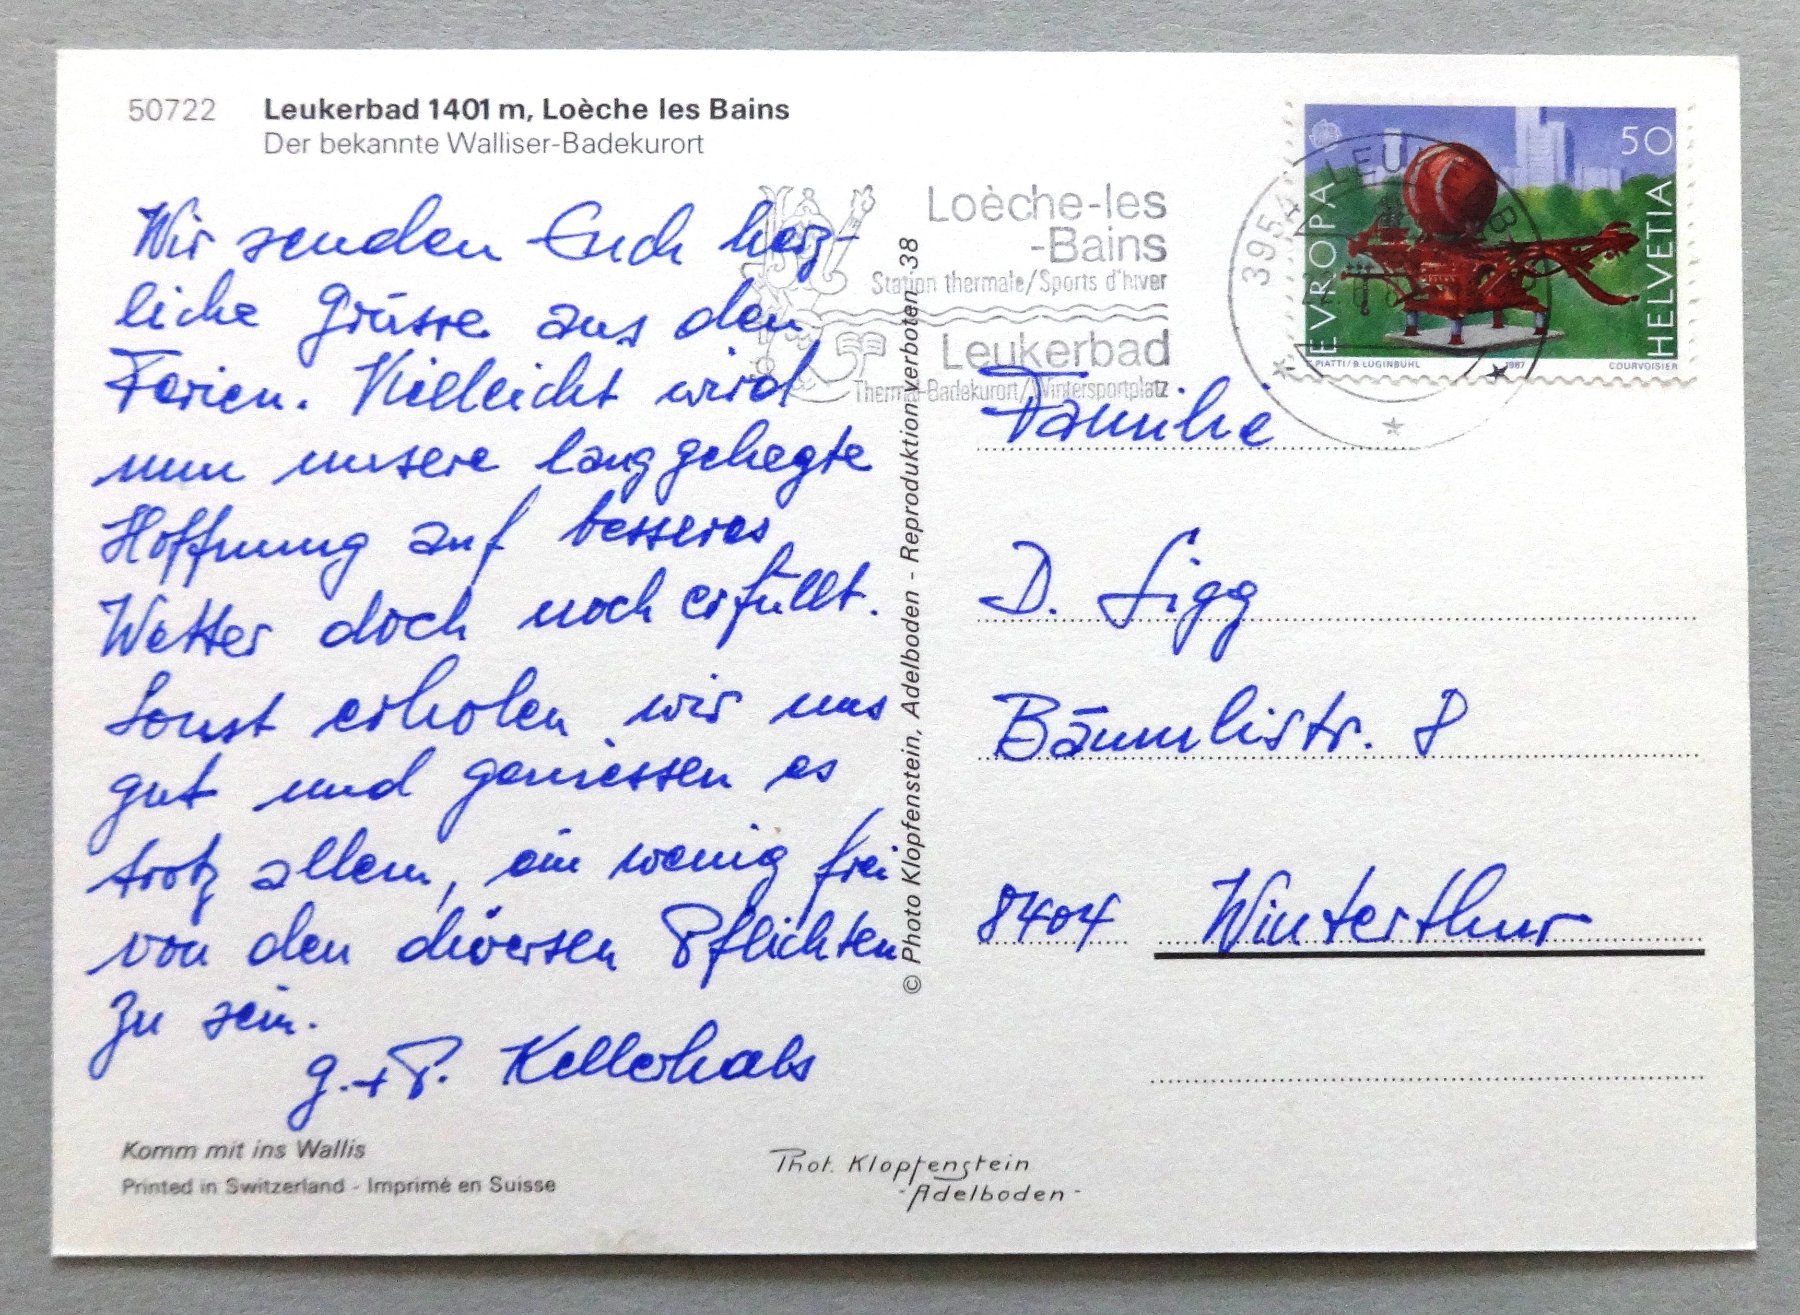 50722 Leukerbad 1401 m, Loèche les Bains
Der bekannte Walliser-Badekurort
Wir senden Euch herz-
liche Grüsse aus den
Ferien. Vielleicht wird
nun unsere langgehegte
Hoffnung auf besseres
Wetter doch noch erfüllt.
Sonst erholen wir uns
gut und geniessen es
trotz allem, ein wenig frei
von den diversen Pflichten
zu sein.
G. + P. Kellerhals
Komm mit ins Wallis
Printed in Switzerland - Imprimé en Suisse
© Photo Klopfenstein, Adelboden - Reproduktion verboten 38
Phot. Klopfenstein
- Adelboden -
Loèche-les
-Bains
Station thermale/Sports d'hiver
Leukerbad
Thermal-Badekurort/Wintersportplatz
3954 LEUKERBAD
EVROPA
50
HELVETIA
C. PIATTI/B. LUGINBÜHL 1987 COURVOISIER
Familie
D. Sigg
Bäumlistr. 8
8404 Winterthur